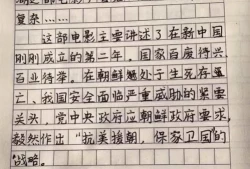 复杂……
这部电影主要讲述了在新中国
刚刚成立的第二年，国家百废待兴，
百业待举。在朝鲜处于生死存
亡、我国安全面临严重威胁的紧要
关头，党中央政府应朝鲜政府要求，
毅然作出“抗美援朝，保家卫国”的
战略。